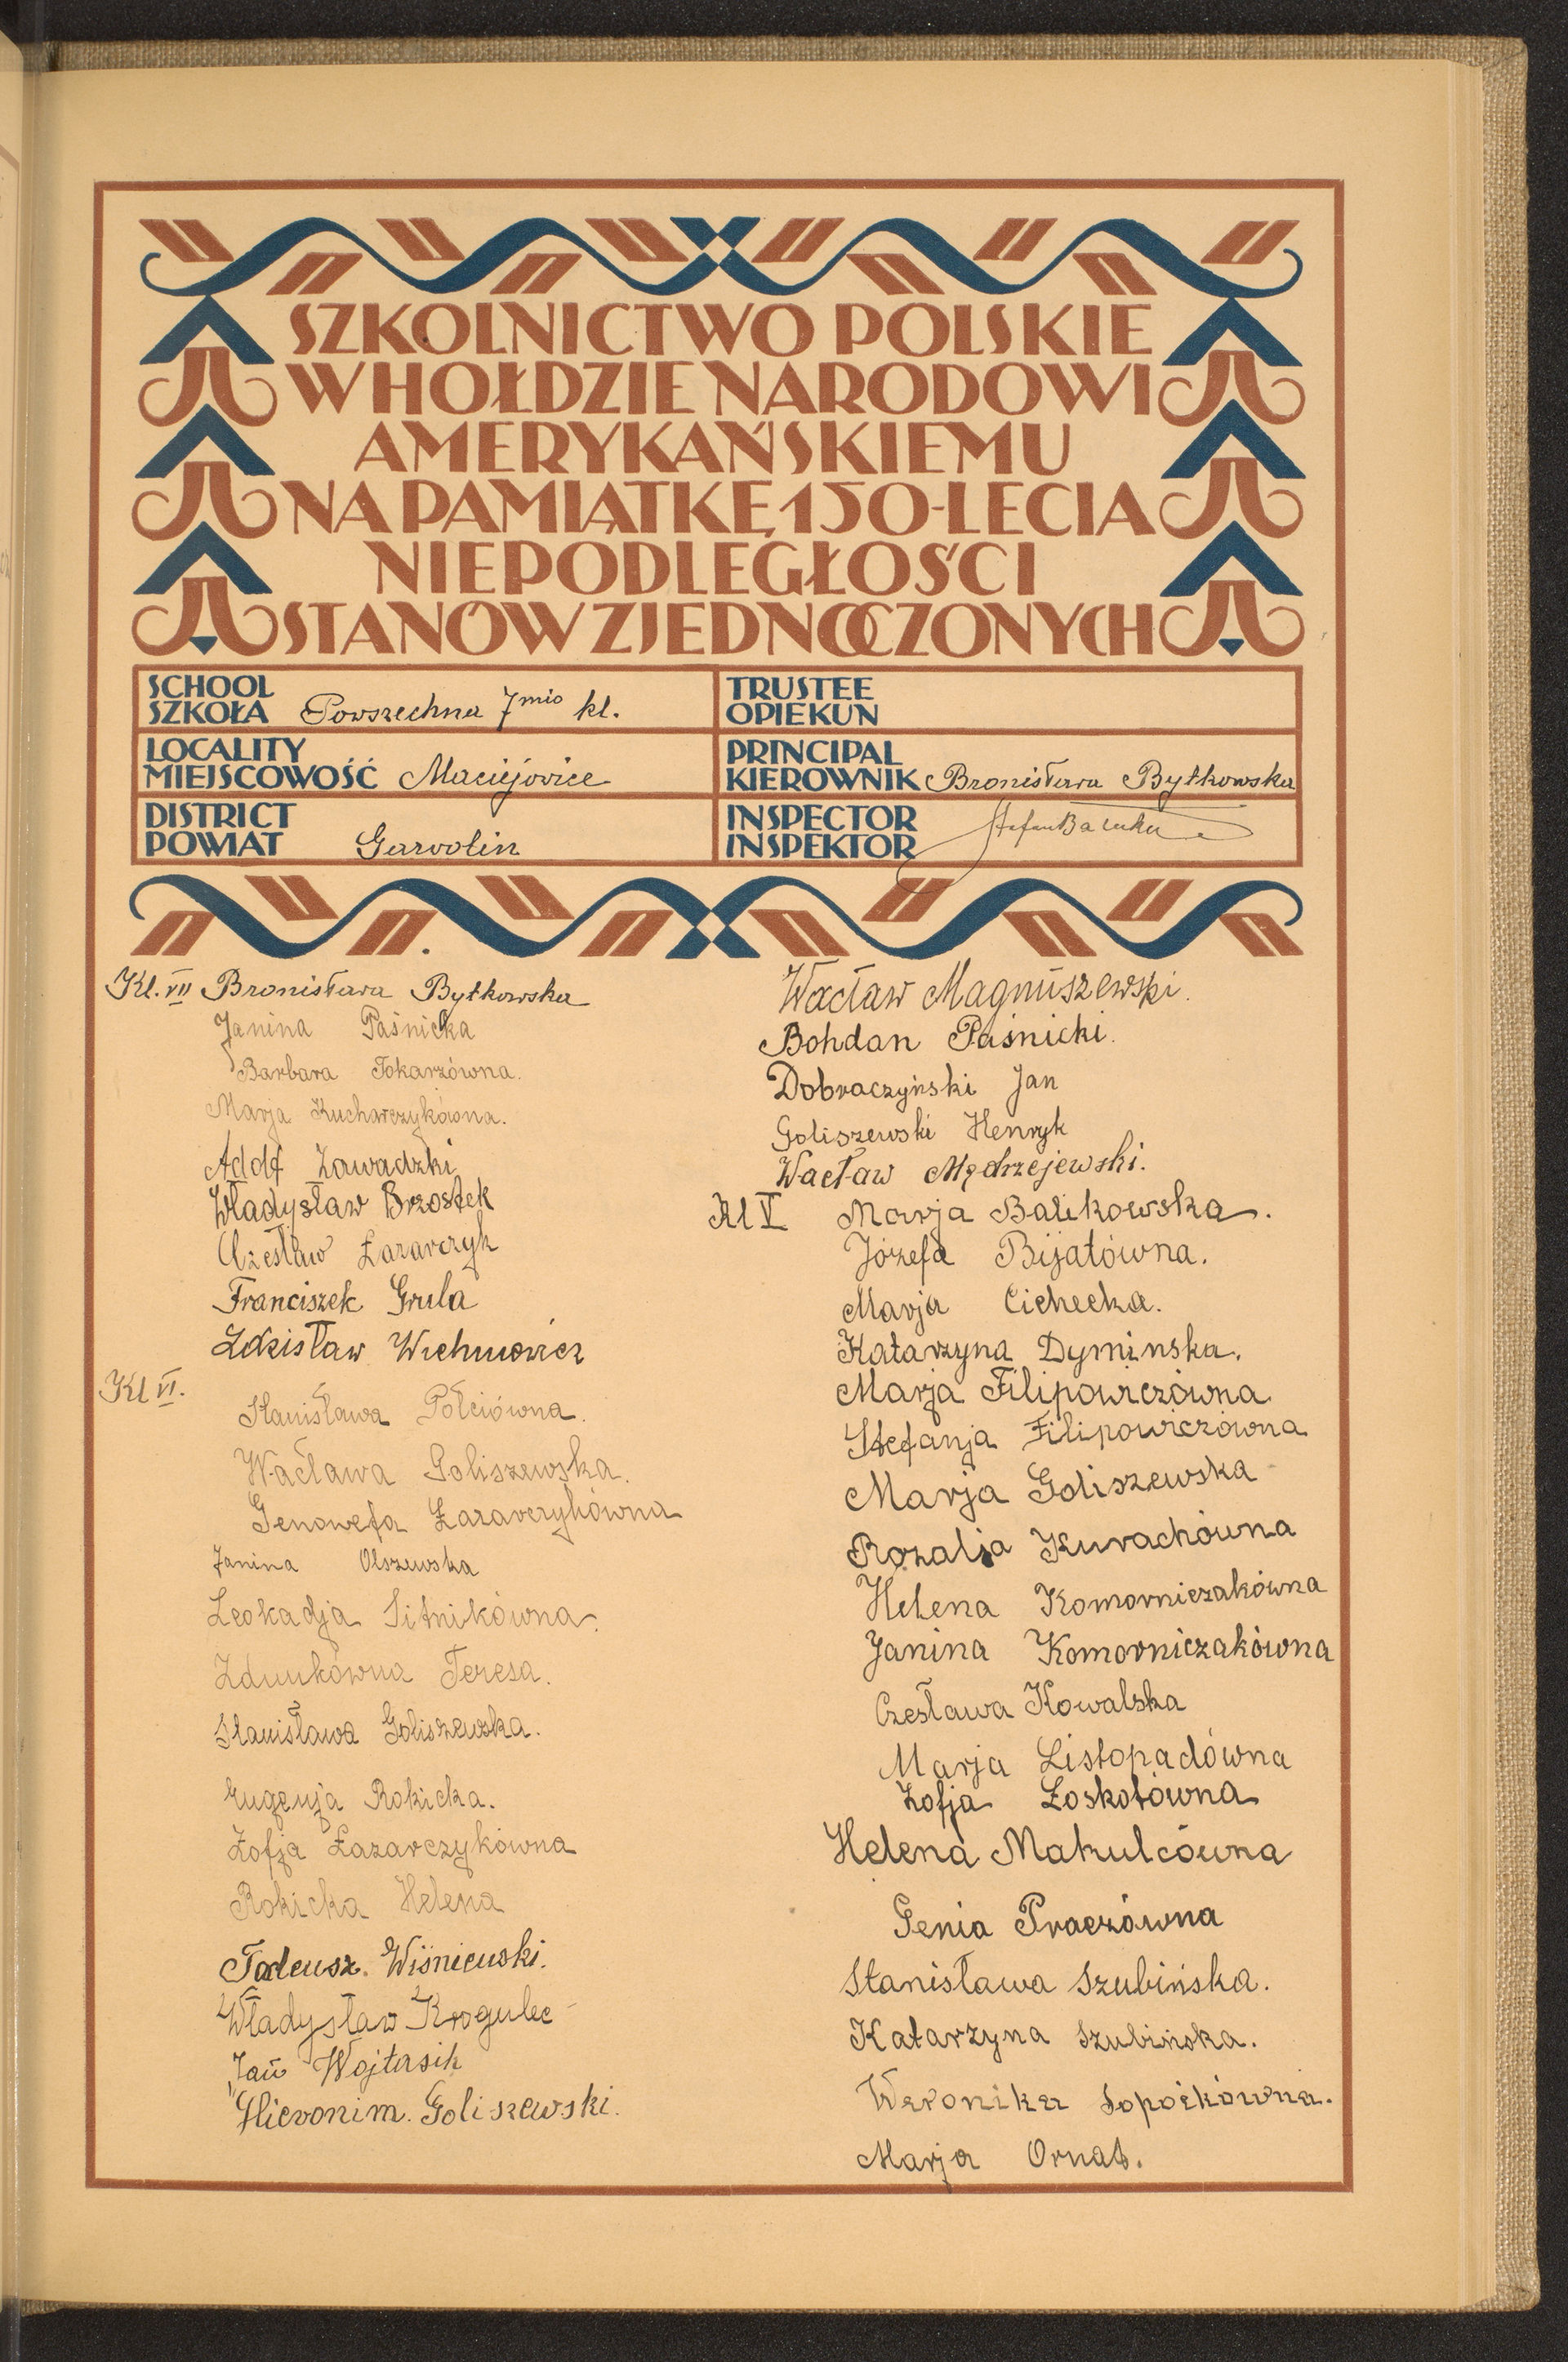 SZKOLNICTWO POLSKIE
W HOŁDZIE NARODOWI
AMERYKAŃSKIEMU
NA PAMIĄTKĘ 150-LECIA
NIEPODLEGŁOŚCI
STANÓW ZJEDNOCZONYCH
SCHOOL
SZKOŁA Powszechna 7mio kl.
LOCALITY
MIEJSCOWOŚĆ Maciejowice
DISTRICT
POWIAT Garwolin
TRUSTEE
OPIEKUN
PRINCIPAL
KIEROWNIK Bronisława Bytkowska
INSPECTOR
INSPEKTOR Stefan
Kl. VII Bronisława Bytkowska
Janina Paśnicka
Barbara Tokarzówna.
Marja Kucharczykówna.
Adolf Zawadzki
Władysław Brzostek
Czesław Łazarczyk
Franciszek Grula
Zdzisław Wichnowicz
Kl VI.
Stanisława Połciówna.
Wacława Goliszewska.
Genowefa Łazarczykówna
Janina Olszewska
Leokadja Sitnikówna.
Zdunkówna Teresa.
Stanisława Goliszewska.
Eugenja Rokicka.
Zofja Łazarczykówna
Rokicka Helena
Tadeusz. Wiśniewski.
Władysław Krogulec
Jan Wojtasik
Hieronim. Goliszewski.
Wacław Magnuszewski.
Bohdan Paśnicki.
Dobraczyński Jan
Goliszewski Henryk
Wacław Mędrzejewski.
Kl V Marja Balikowska.
Józefa Bijatówna.
Marja Cichecka.
Katarzyna Dyminska.
Marja Filipowiczówna
Stefanja Filipowiczówna
Marja Goliszewska
Rozalja Kurachówna
Helena Komorniczakówna
Janina Komorniczakówna
Czesława Kowalska
Marja Listopadówna
Zofja Łoskotówna
Helena Makulcówna
Genia Praczówna
Stanisława Szubińska.
Katarzyna Szubińska.
Weronika Sopoćkówna.
Marja Ornat.